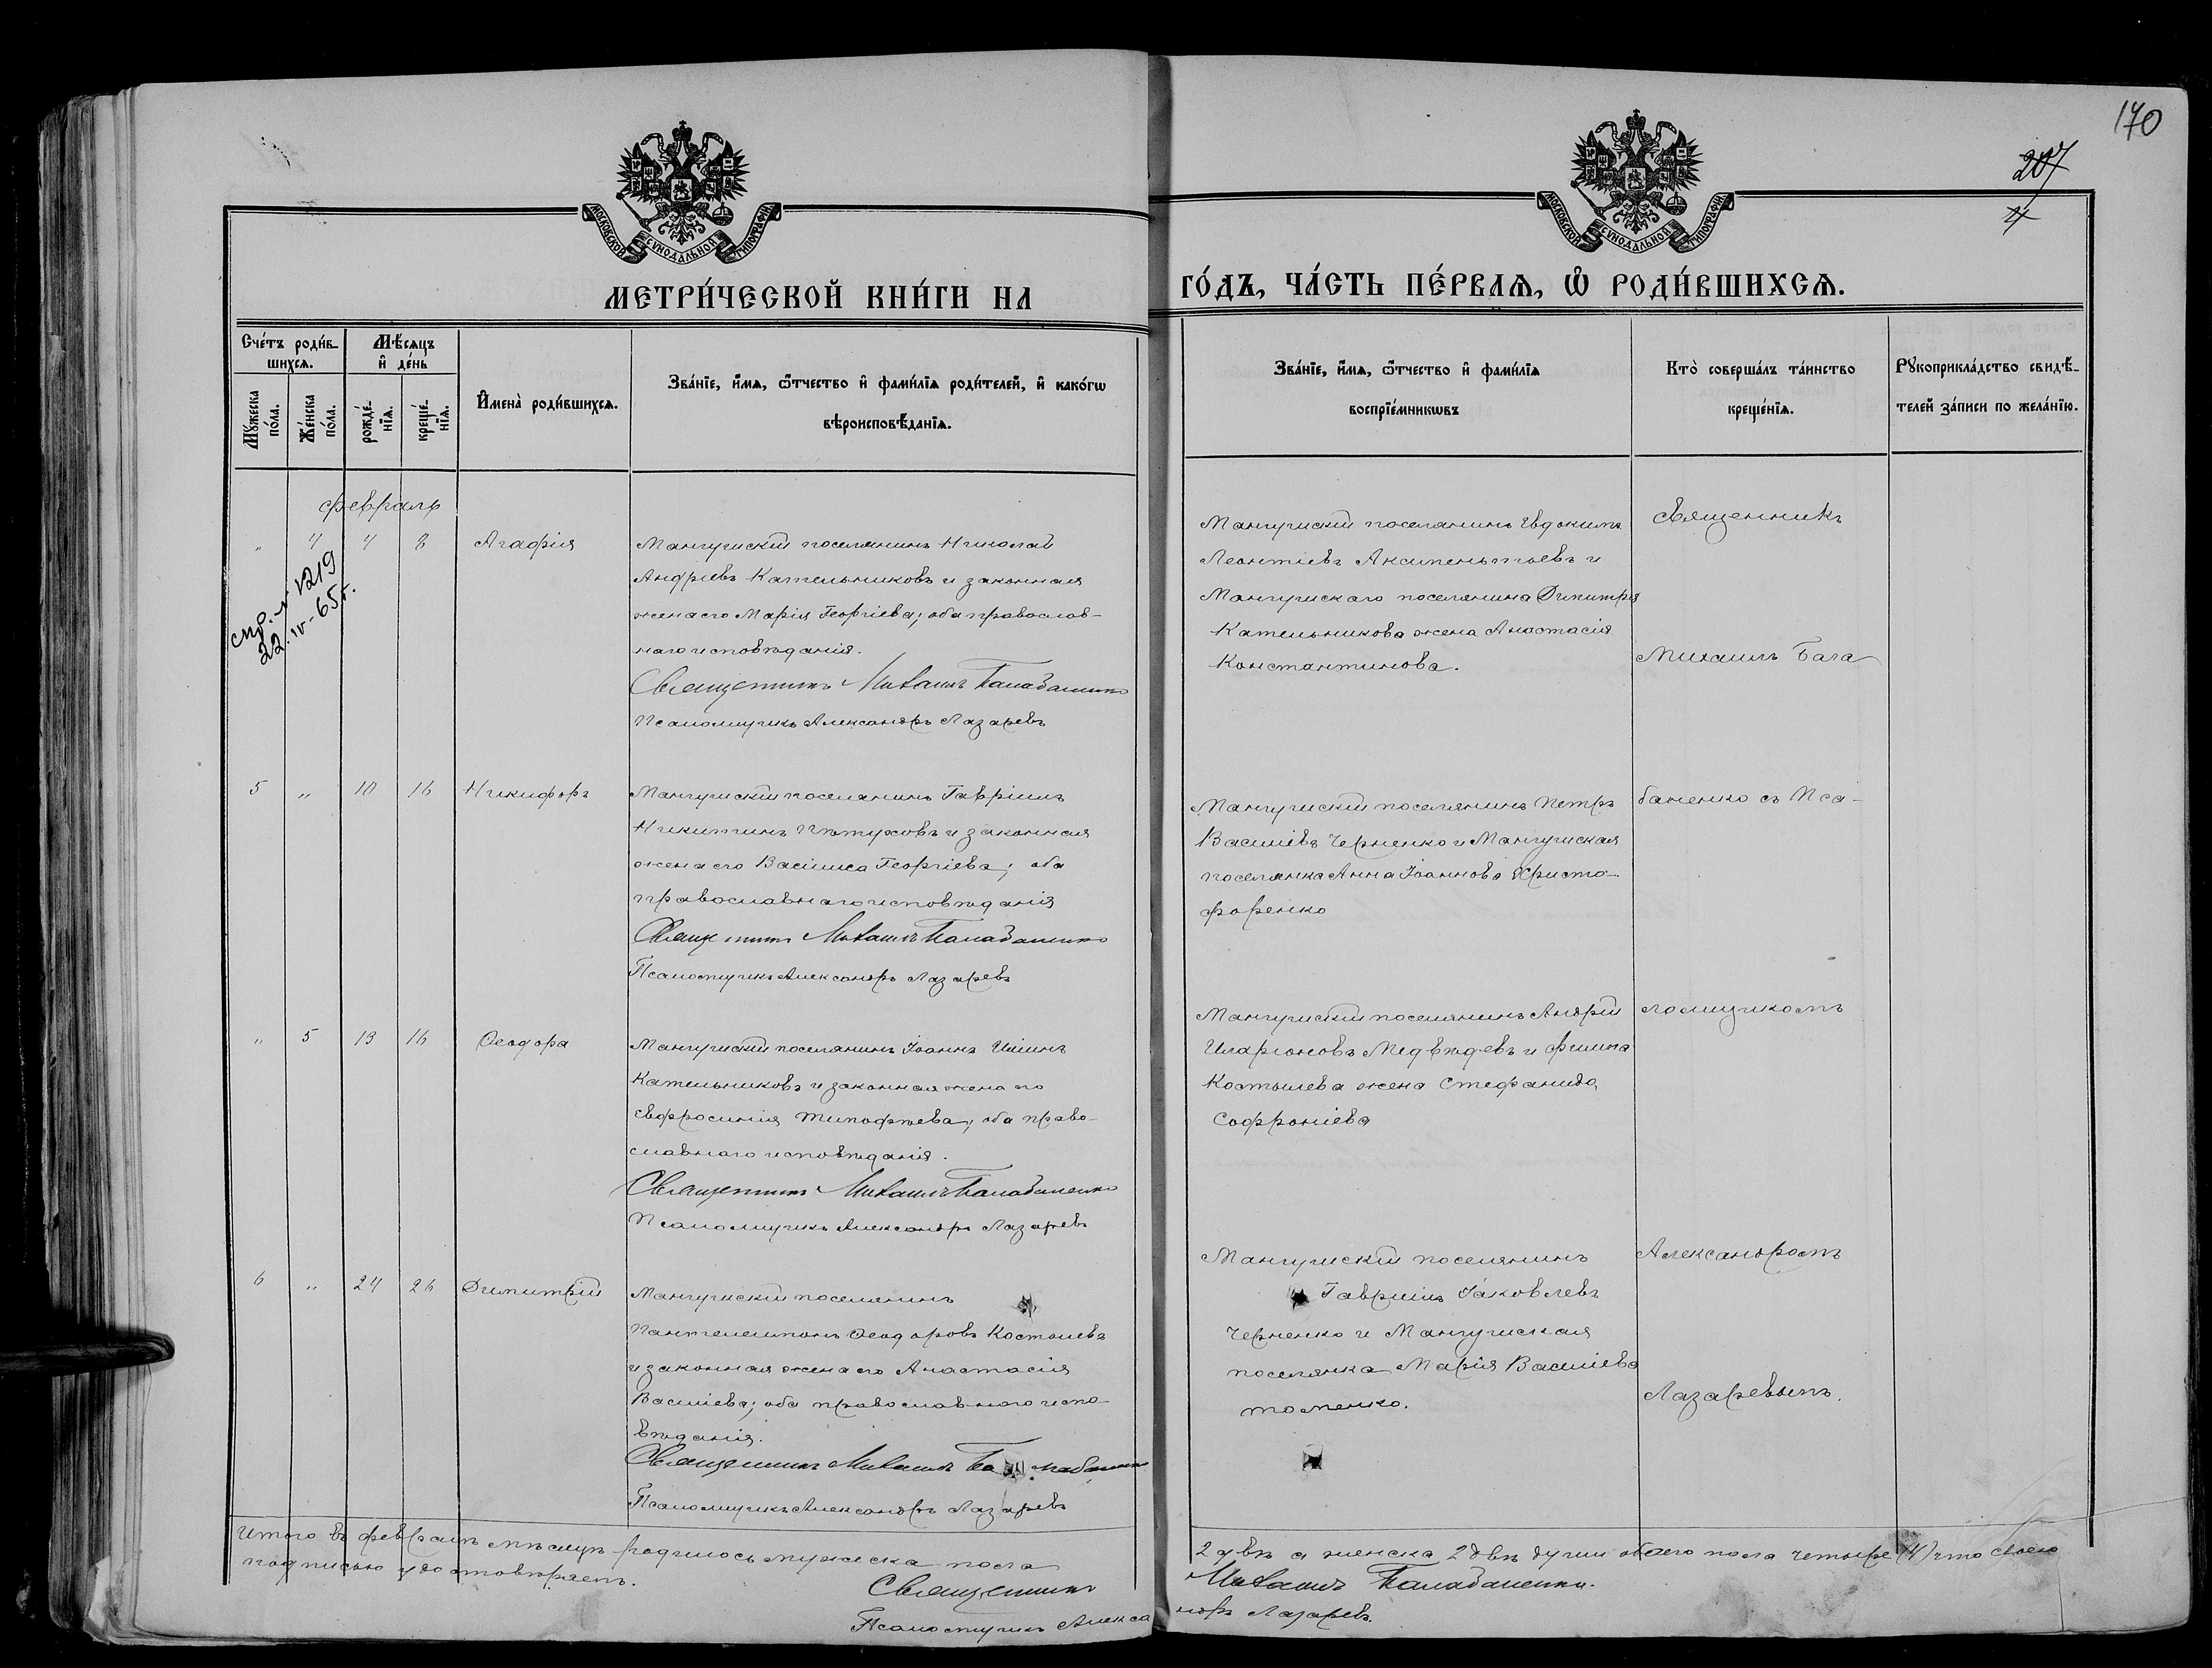 170
207
4
МОСКОВСКОЙ СѴНОДАЛЬНОЙ ТИПОГРАФІИ
МОСКОВСКОЙ СѴНОДАЛЬНОЙ ТИПОГРАФІИ
МЕТРИ́ЧЕСКОЙ КНИ́ГИ НА
ГО́ДЪ, ЧА́СТЬ ПЕ́РВАѦ, Ѽ РОДИ́ВШИХСѦ.
Сче́тъ роди́в-
шихсѧ.
Мѣ́сѧцъ
и҆ де́нь
Мꙋ́жеска по́ла.
Же́нска по́ла.
рожде́-нїѧ.
креще́-нїѧ.
И҆мена̀ роди́вшихсѧ.
Зва́нїе, и҆́мѧ, ѻ҆́тчество и҆ фами́лїѧ роди́телей, и҆ како́гѡ
вѣроисповѣ́данїѧ.
Зва́нїе, и҆́мѧ, ѻ҆́тчество и҆ фами́лїѧ
воспрїе́мникѡвъ
Кто̀ соверша́лъ та́инство
креще́нїѧ.
Рꙋкоприкла́дство свидѣ́-
телей за́писи по жела́нїю.
февраль
„ 4 4 8 Агафія
спр. ч 1219
22.IV-65г.
Мангушскій поселянинъ Николай
Андріевъ Кательниковъ и законная
жена его Марія Георгіева; оба православ-
наго исповѣданія.
Священникъ Михаилъ Балабаненко
Псаломщикъ Александръ Лазаревъ
Мангушскій поселянинъ Евдокимъ
Леонтіевъ Аксиментьевъ и
Мангушскаго поселянина Димитрія
Кательникова жена Анастасія
Константинова.
Священникъ
Михаилъ Бала
5 „ 10 16 Никифоръ
Мангушскій поселянинъ Гавріилъ
Никитинъ Пѣтуховъ и законная
жена его Васіліса Георгіева; оба
православнаго исповѣданія
Священникъ Михаилъ Балабаненко
Псаломщикъ Александръ Лазаревъ
Мангушскій поселянинъ Петръ
Василіевъ Черненко и Мангушская
поселянка Анна Іоаннова Христо-
форенко
баненко съ Пса-
„ 5 13 16 Ѳеодора
Мангушскій поселянинъ Іоаннъ Иліинъ
Кательниковъ и законная жена его
Евфросинія Тимофѣева; оба право-
славнаго исповѣданія.
Священникъ Михаилъ Балабаненко
Псаломщикъ Александръ Лазаревъ
Мангушскій поселянинъ Андрій
Иларіоновъ Медвѣдевъ и Филипа
Костылева жена Стефанида
Софроніева
ломщикомъ
6 „ 24 26 Димитрій
Мангушскій поселянинъ
Пантелеимонъ Ѳеодоровъ Костылевъ
и законная жена его Анастасія
Василіева; оба православнаго испо-
вѣданія.
Священникъ Михаилъ Балабаненко
Псаломщикъ Александръ Лазаревъ
Мангушскій поселянинъ
Гавріилъ Іаковлевъ
Черненко и Мангушская
поселянка Марія Василіева
Томенко.
Александромъ
Лазаревымъ.
Итого въ февралѣ мѣсяцѣ родилось мужеска пола
2 двѣ а женска 2 двѣ души обоего пола четыре (4) что своею
подписью удостовѣряемъ.
Священникъ
Михаилъ Балабаненко.
Псаломщикъ Алекса
ндръ Лазаревъ.